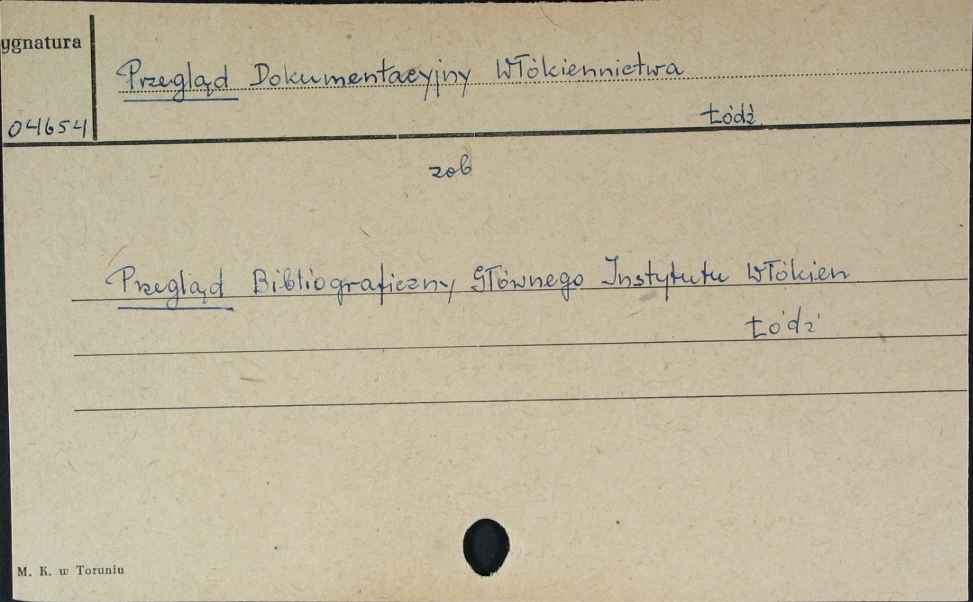 ygnatura
Przegląd Dokumentacyjny Włókiennictwa
04654
Łódź
zob
Przegląd Bibliograficzny Głównego Instytutu Włókien
Łódź
M. K. w Toruniu